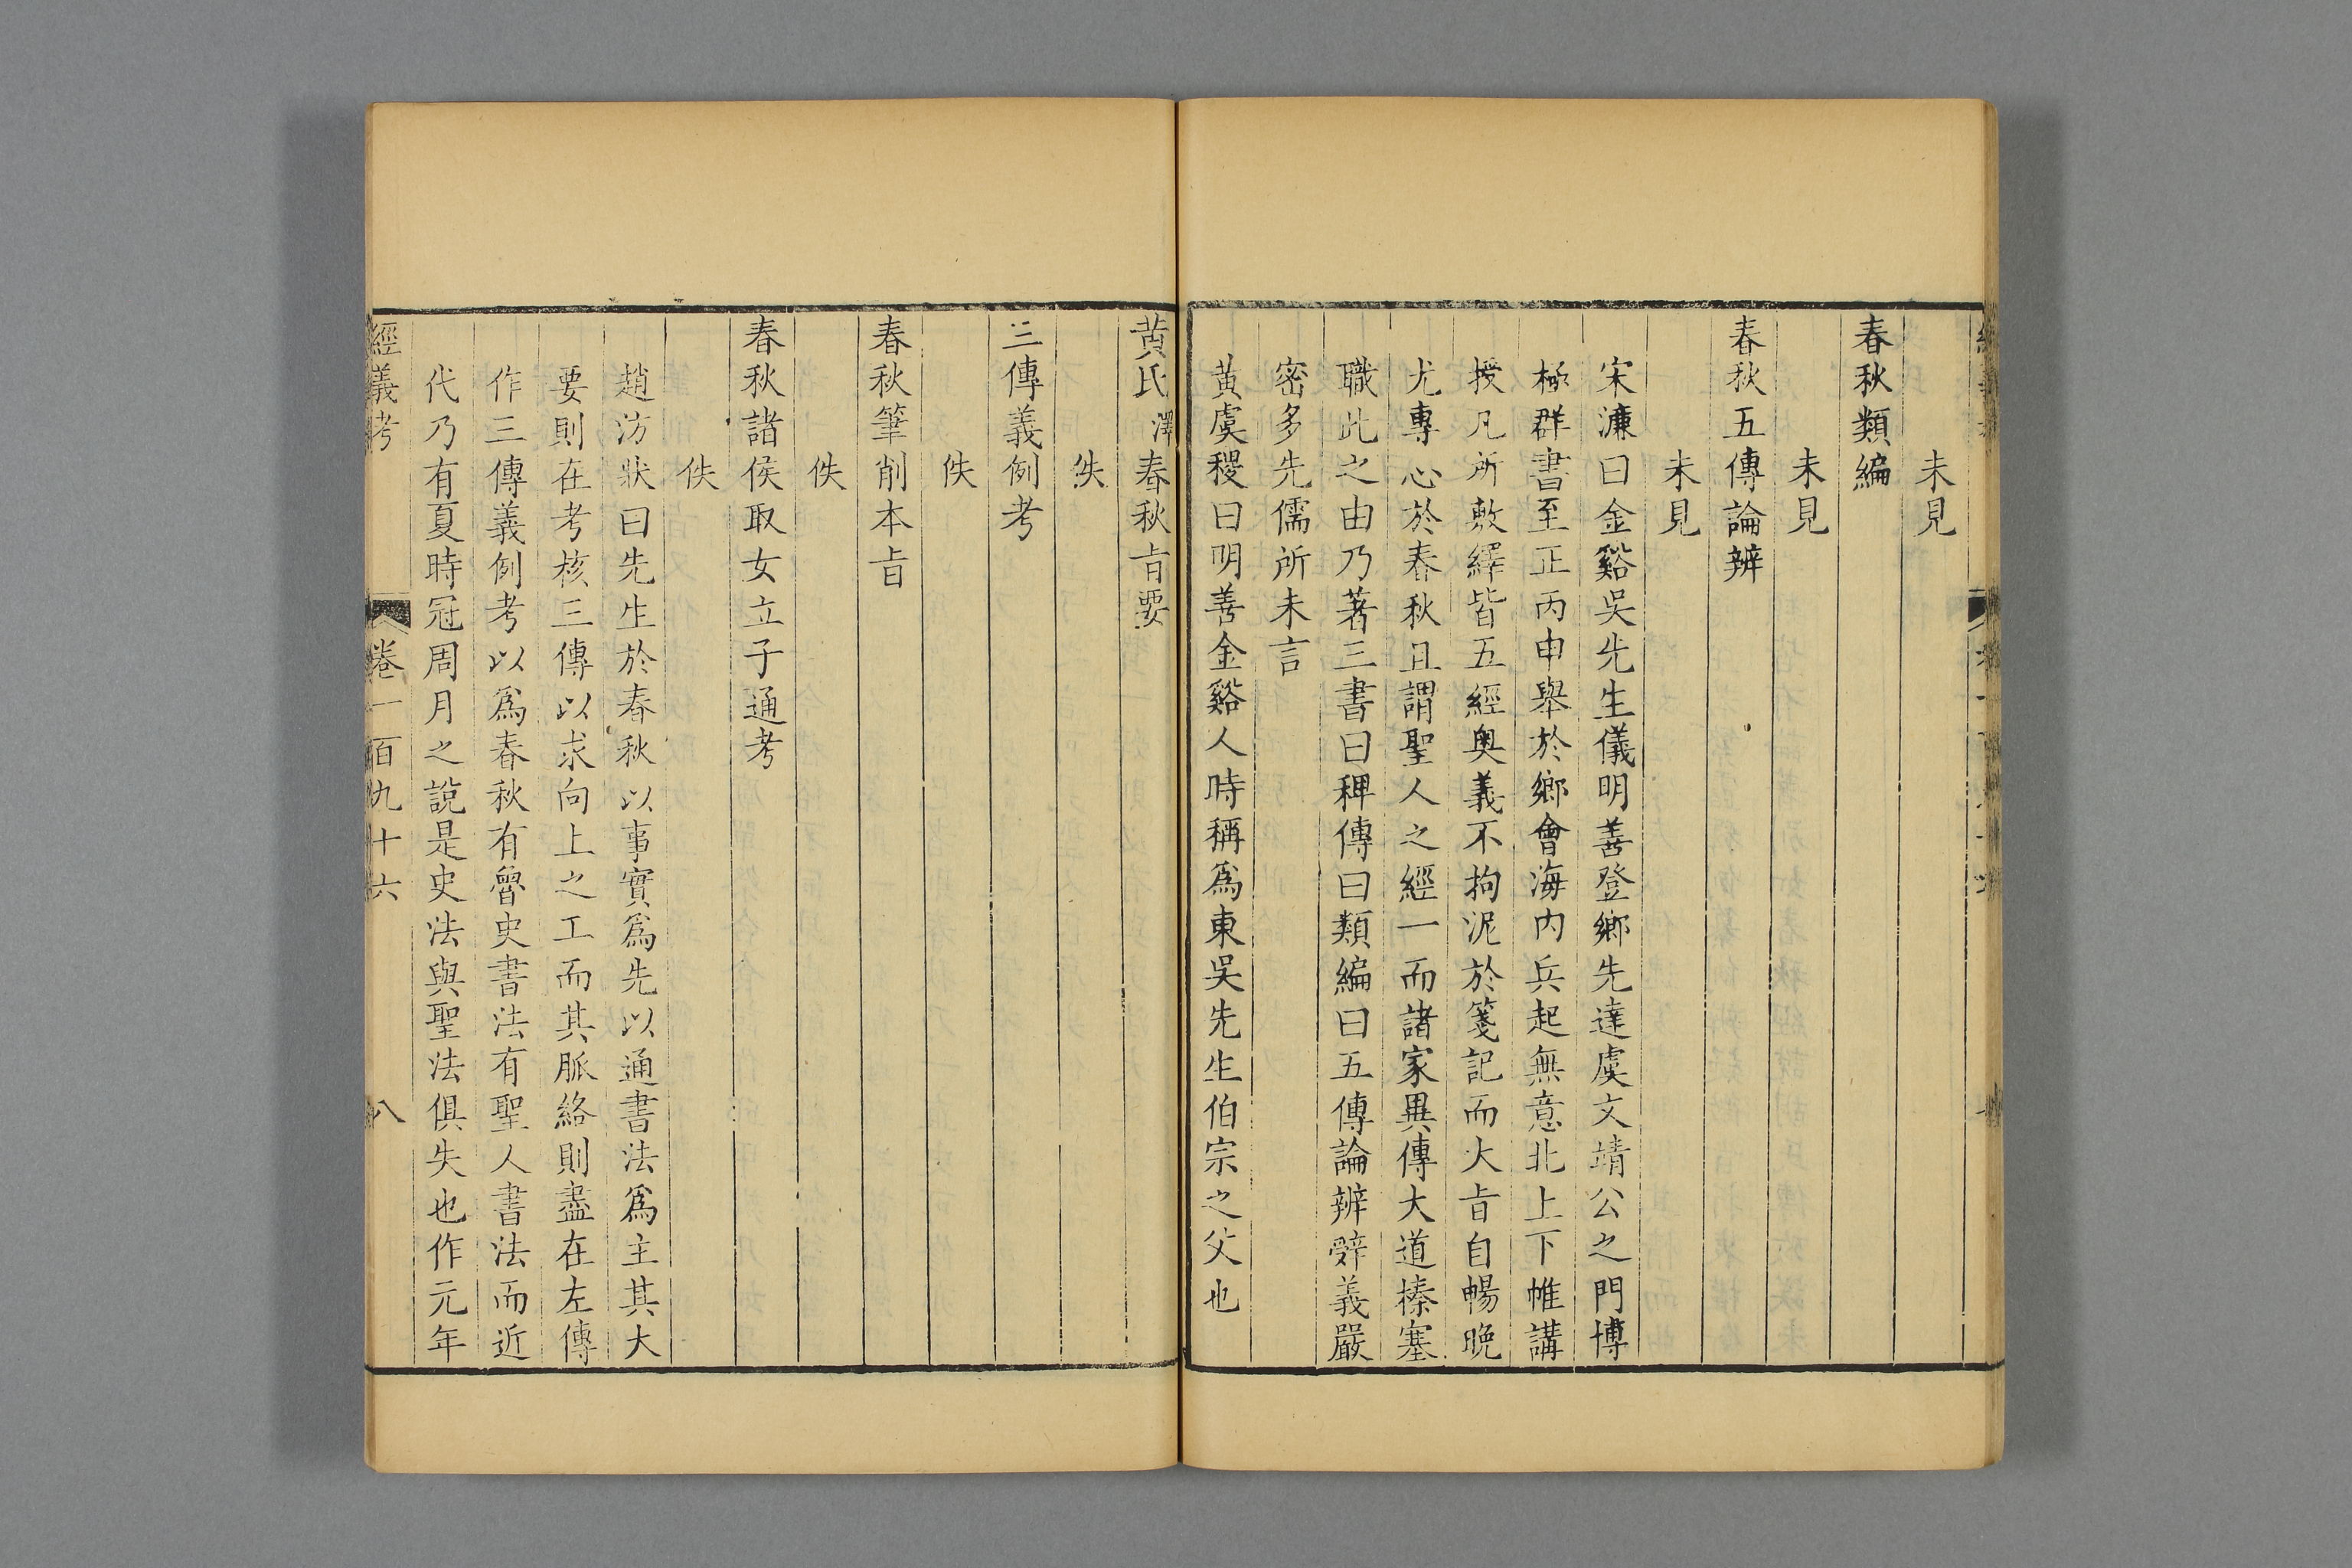 未見
春秋類編
未見
春秋五傳論辨
未見
宋濂曰金谿吳先生儀明善登鄉先達虞文靖公之門博
極群書至正丙申舉於鄉會海內兵起無意北上下帷講
授凡所敷繹皆五經奥義不拘泥於箋記而大㫖自暢晩
尤專心於春秋且謂聖人之經一而諸家異傳大道榛塞
職此之由乃著三書曰稗傳曰類編曰五傳論辨辭義嚴
密多先儒所未言
黄虞稷曰明善金谿人時稱為東吳先生伯宗之父也
黄氏澤春秋㫖要
佚
三傳義例考
佚
春秋筆削本㫖
佚
春秋諸侯取女立子通考
佚
趙汸狀曰先生於春秋以事實爲先以通書法爲主其大
要則在考核三傳以求向上之工而其脈絡則盡在左傳
作三傳義例考以爲春秋有魯史書法有聖人書法而近
代乃有夏時冠周月之說是史法與聖法俱失也作元年
經義考 卷一百九十六 八